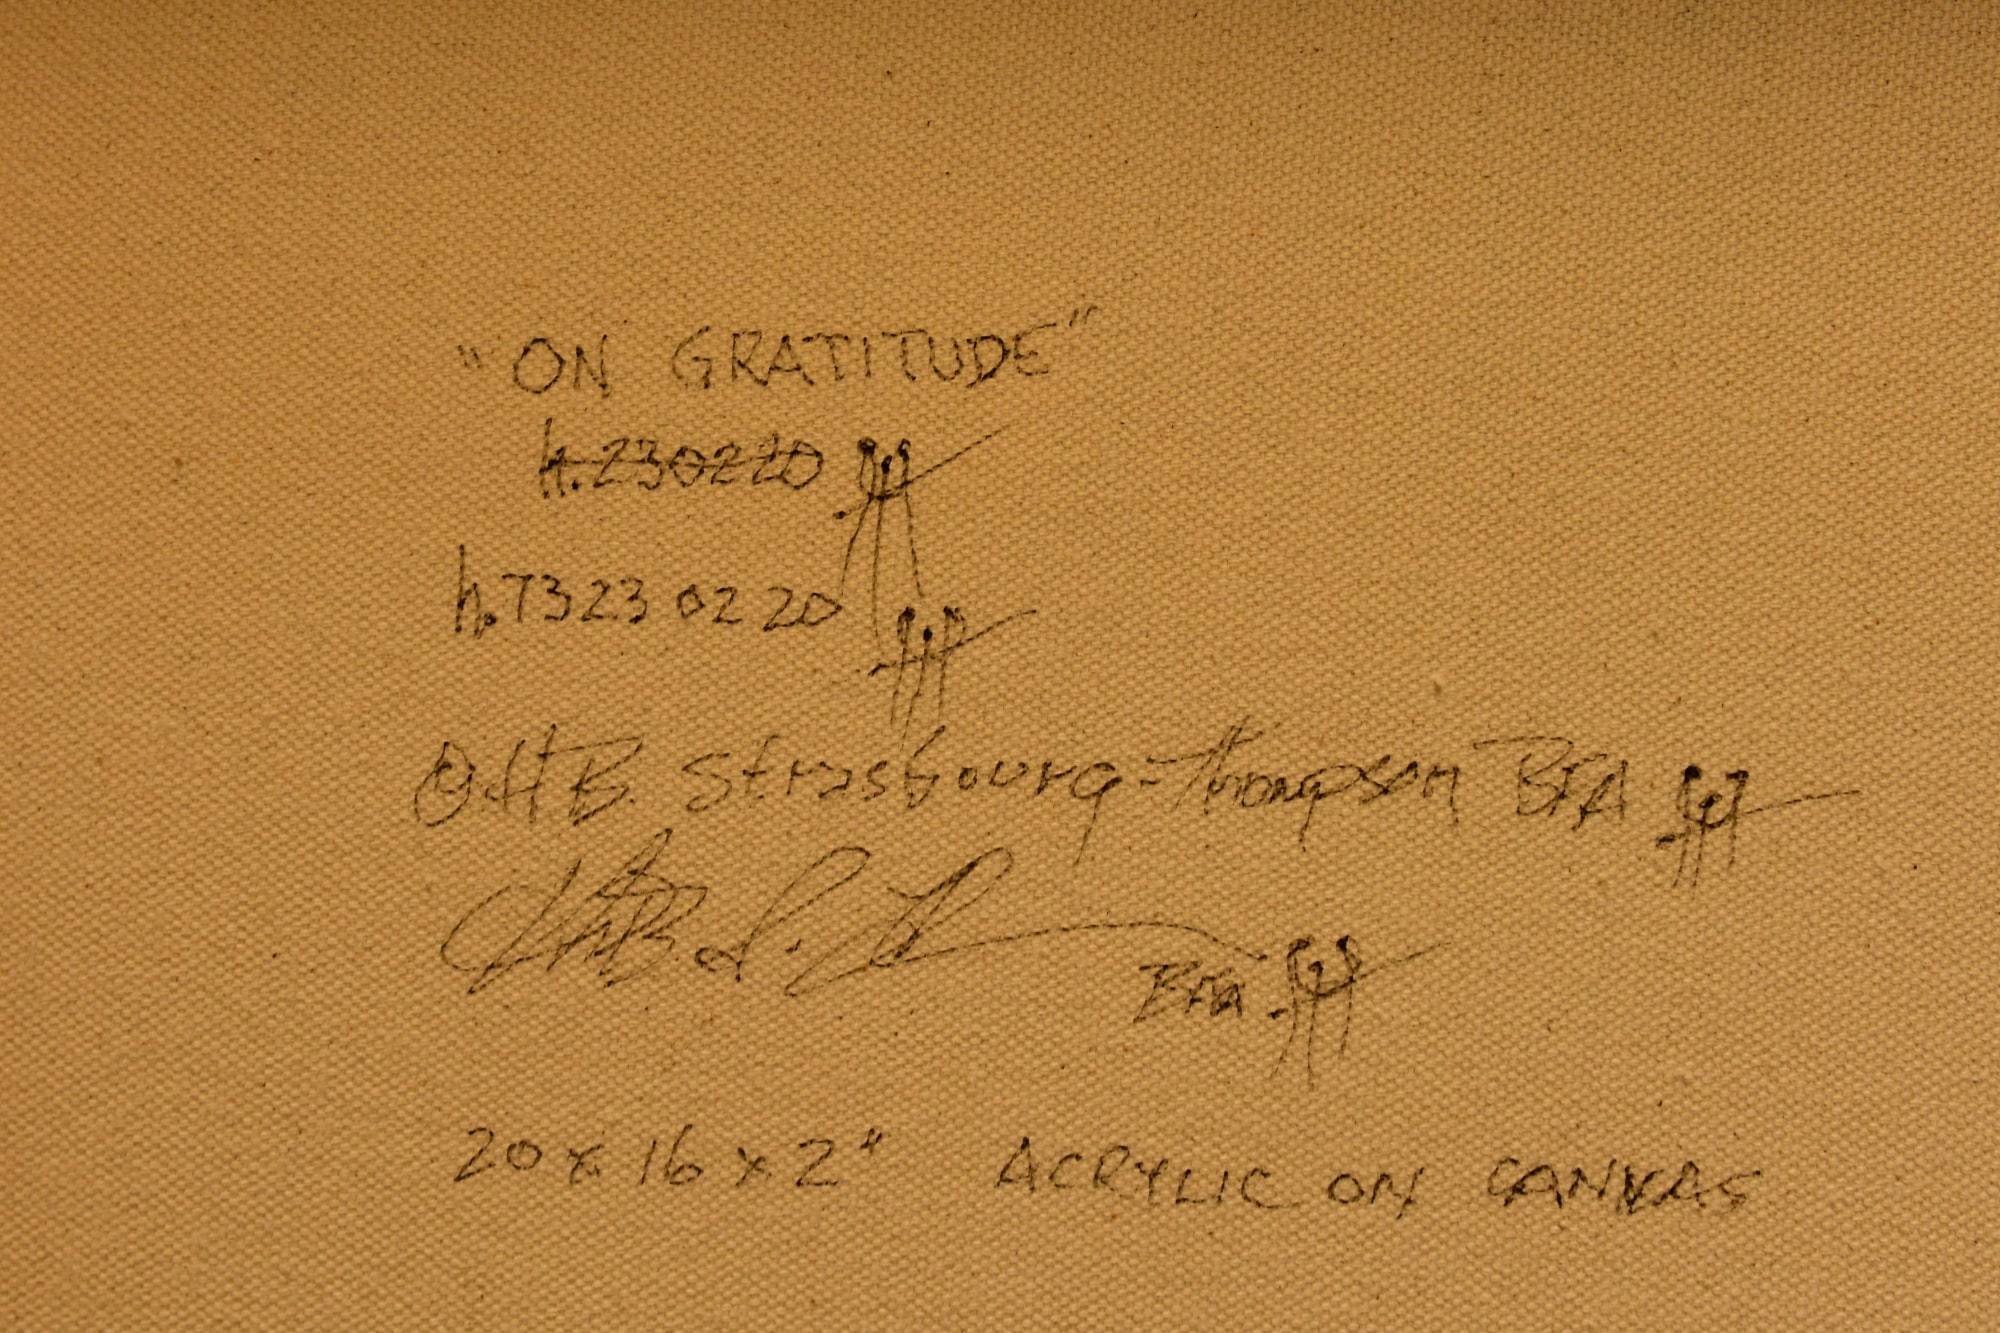 "ON GRATITUDE"
h.230220
h.73230220
© H B. Strasbourg-Thompson BFA
BFA
20 x 16 x 2" ACRYLIC ON CANVAS